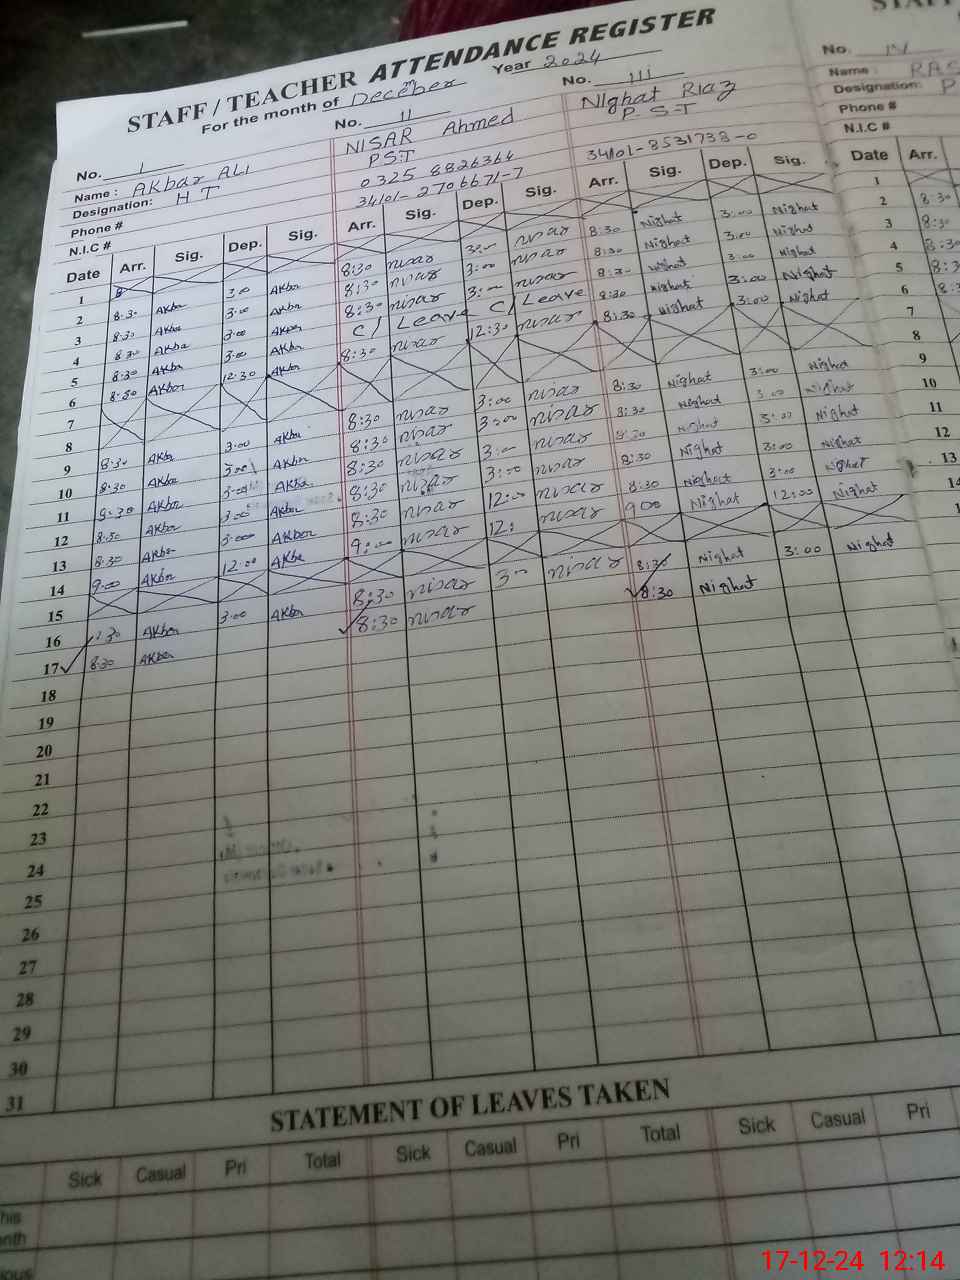 STAFF / TEACHER ATTENDANCE REGISTER
For the month of December Year 2024
No. I No. II No. III No. IV
Name : AKbar ALI NISAR Ahmed NIghat RIaz Name :
Designation: H T PST P. S-T Designation: P
Phone # 0325 8826364 Phone #
N.I.C # 34101-2706671-7 34101-8531738-0 N.I.C #
Date Arr. Sig. Dep. Sig. Arr. Sig. Dep. Sig. Arr. Sig. Dep. Sig. Date Arr.
1 1
2 8:30 AKbar 3:00 AKbar 8:30 nisar 3:00 nisar 8:30 Nighat 3:00 Nighat 2 8:30
3 8:30 AKbar 3:00 AKbar 8:30 nisar 3:00 nisar 8:30 Nighat 3:00 Nighat 3 8:30
4 8:30 AKba 3:00 AKbar 8:30 nisar 3:00 nisar 8:30 Nighat 3:00 Nighat 4 8:30
5 8:30 AKbar 3:00 AKbar C/ Leave C/ Leave 8:30 Nighat 3:00 Nighat 5 8:3
6 8:30 AKbar 12:30 AKbar 8:30 nisar 12:30 nisar 8:30 Nighat 3:00 Nighat 6 8:
7 7
8 8
9 8:30 AKba 3:00 AKbar 8:30 nisar 3:00 nisar 8:30 Nighat 3:00 Nighat 9
10 8:30 AKba 3:00 AKbar 8:30 nisar 3:00 nisar 8:30 Nighat 3:00 Nighat 10
11 8:30 AKbar 3:00 AKba 8:30 nisar 3:00 nisar 8:30 Nighat 3:00 Nighat 11
12 8:30 AKbar 3:00 AKbar 8:30 nisar 3:00 nisar 8:30 Nighat 3:00 Nighat 12
13 8:30 AKbar 3:00 AKbar 8:30 nisar 12:00 nisar 8:30 Nighat 3:00 Nighat 13
14 9:00 AKbar 12:00 AKba 9:00 nisar 12: nisar 9:00 Nighat 12:00 Nighat
15
16 8:30 AKbar 3:00 AKbar 8:30 nisar 3:00 nisar 8:30 Nighat 3:00 Nighat
17 8:30 AKbar 8:30 nisar 8:30 Nighat
18
19
20
21
22
23
24
25
26
27
28
29
30
31
STATEMENT OF LEAVES TAKEN
Sick Casual Pri Total Sick Casual Pri Total Sick Casual Pri
17-12-24 12:14